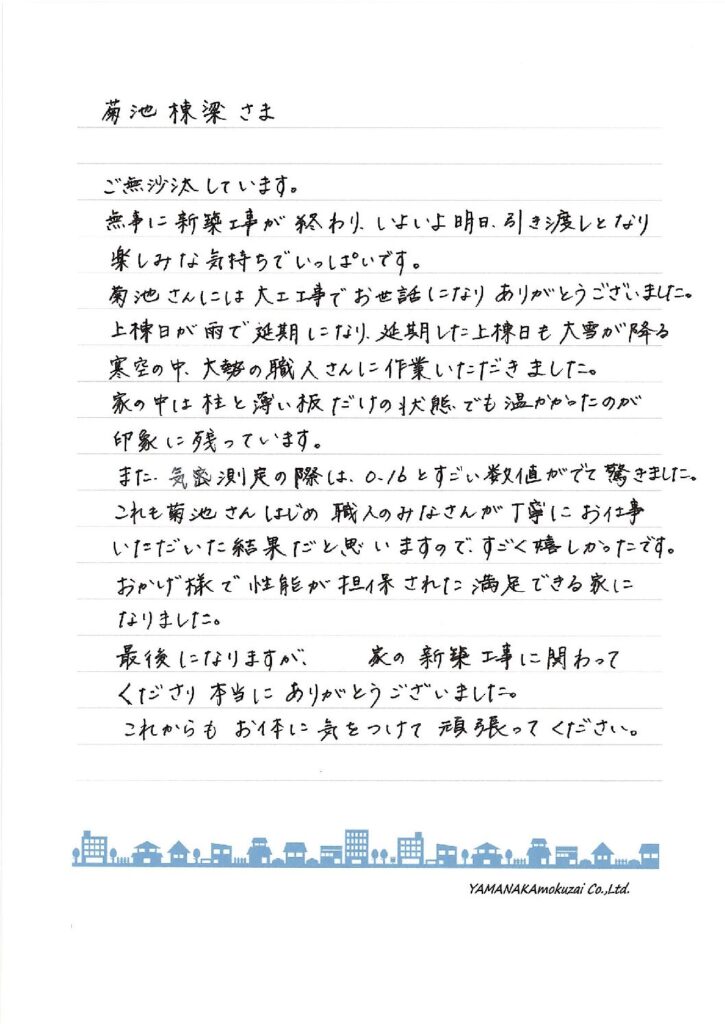 菊池棟梁さま
ご無沙汰しています。
無事に新築工事が終わり、いよいよ明日、引き渡しとなり
楽しみな気持ちでいっぱいです。
菊池さんには大工工事でお世話になりありがとうございました。
上棟日が雨で延期になり、延期した上棟日も大雪が降る
寒空の中、大勢の職人さんに作業いただきました。
家の中は柱と薄い板だけの状態でも温かかったのが
印象に残っています。
また、気密測定の際は、0.16とすごい数値がでて驚きました。
これも菊池さんはじめ職人のみなさんが丁寧にお仕事
いただいた結果だと思いますので、すごく嬉しかったです。
おかげ様で性能が担保された満足できる家に
なりました。
最後になりますが、 家の新築工事に関わって
くださり本当にありがとうございました。
これからもお体に気をつけて頑張ってください。
YAMANAKAmokuzai Co.,Ltd.